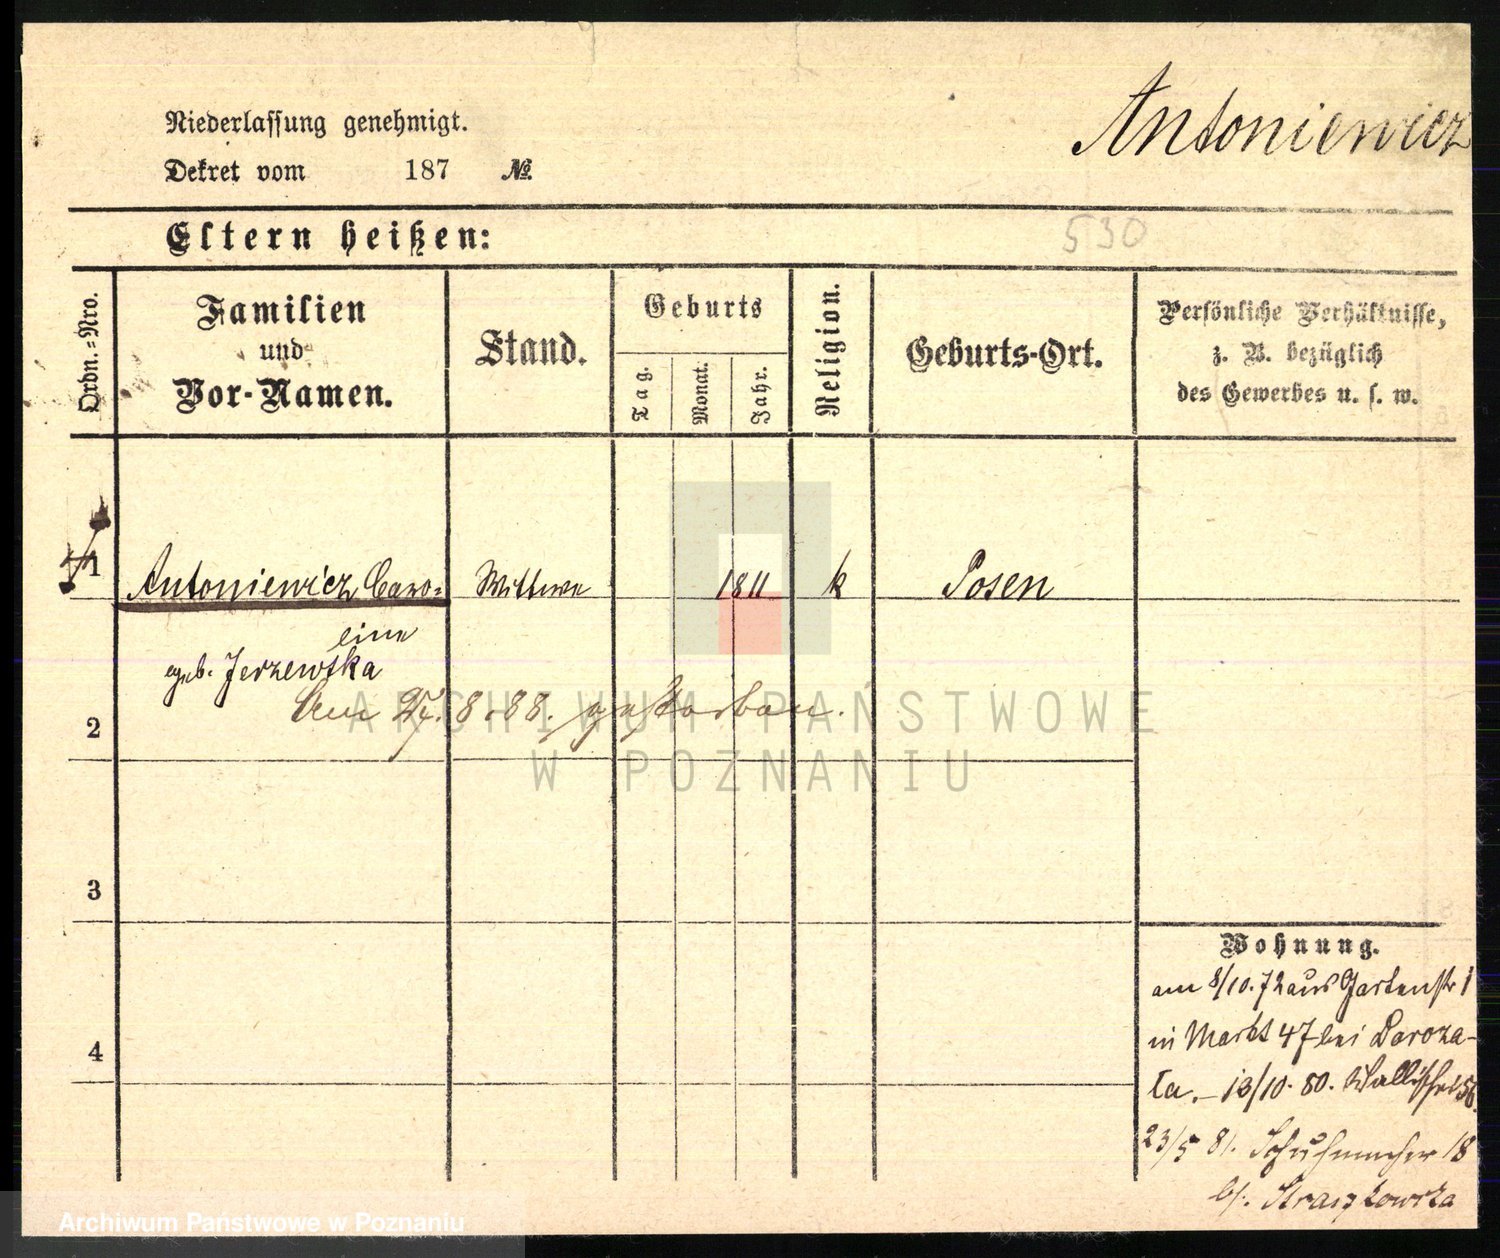 Antoniewicz
Niederlassung genehmigt.
Dekret vom 187 №.
530
Eltern heißen:
Ordn.-Nro.
Familien
und
Vor-Namen.
Stand.
Geburts
Tag.
Monat.
Jahr.
Religion.
Geburts-Ort.
Persönliche Verhältnisse,
z. B. bezüglich
des Gewerbes u. s. w.
1 Antoniewicz Caro= Wittwe 1811 k Posen
line
geb. Jerzewska
Am 27. 8. 88. gestorben.
2
3
4
ARCHIWUM PAŃSTWOWE
W POZNANIU
Wohnung.
am 8/10. 72 aus Gartenstr 1
in Markt 47 bei
ta. – 13/10. 80. Wallischei
23/5 81. Schuhmacher 18
b/.
Archiwum Państwowe w Poznaniu